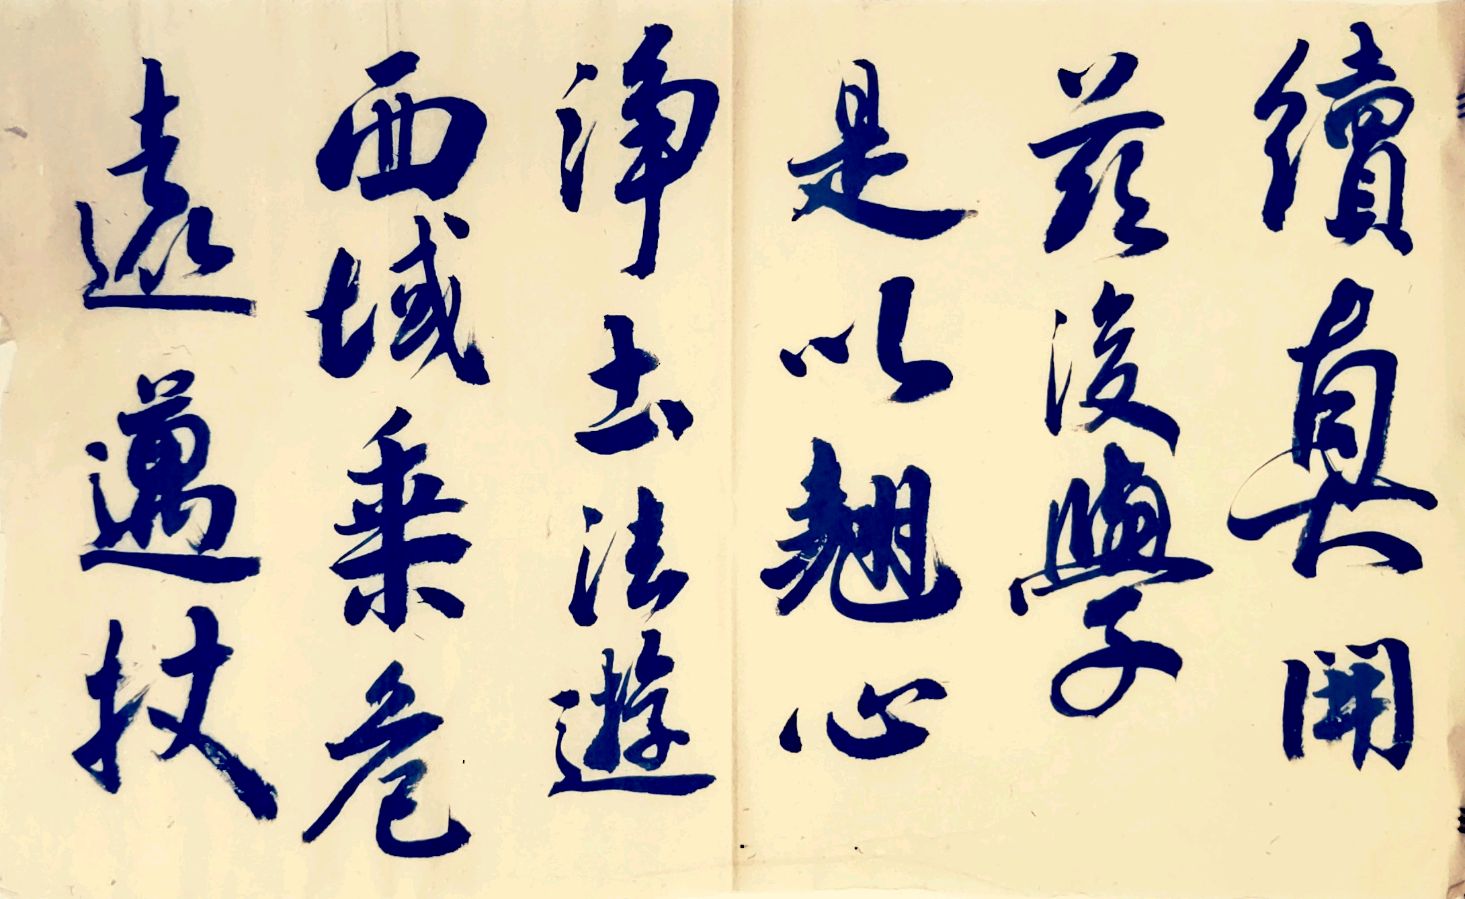 續真開
茲後學
是以翹心
淨土法遊
西域乘危
遠邁杖